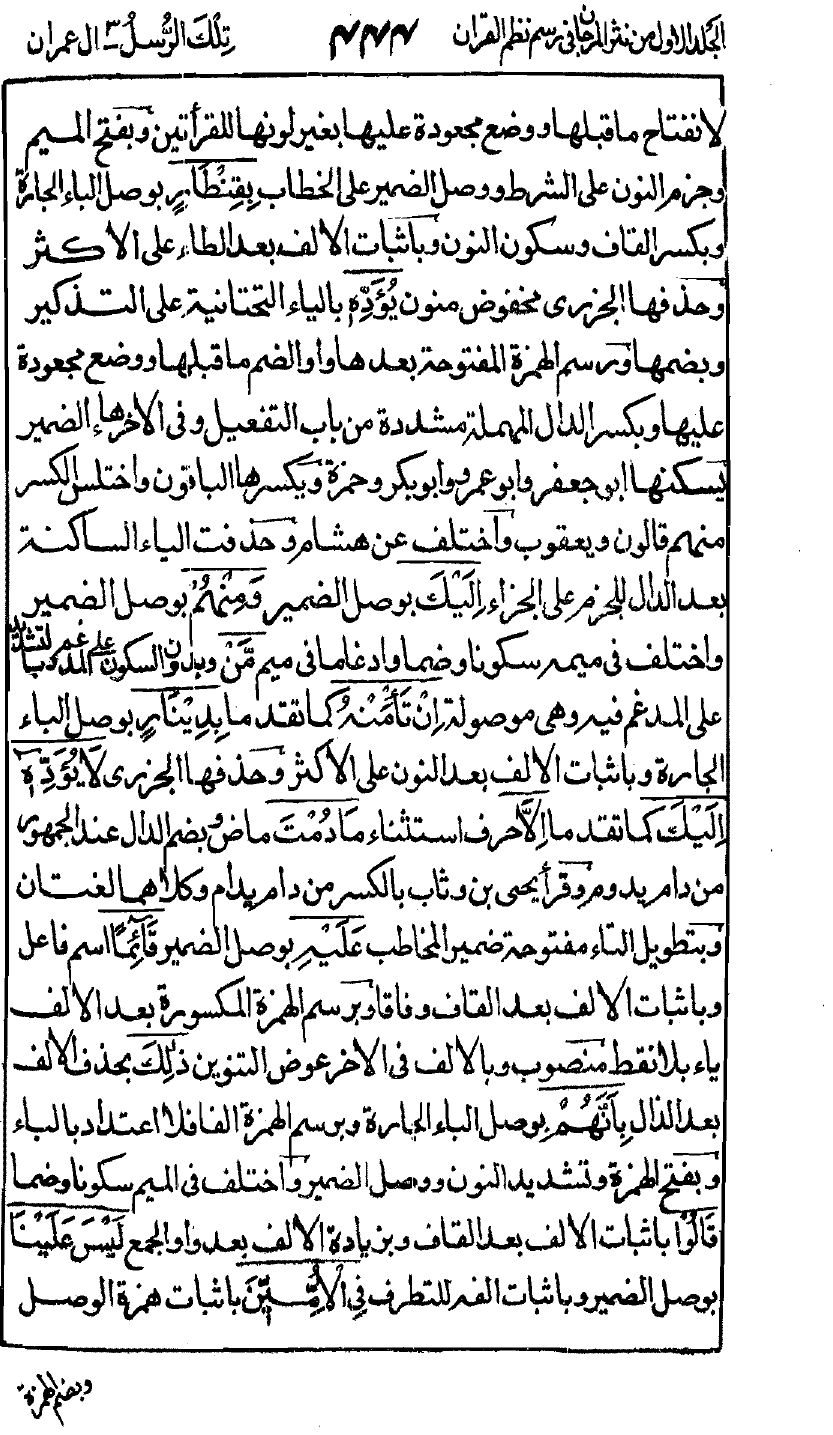 الجلد الاول من نثر المرجان فى رسم نظم القرآن ٤٤٤ تِلْكَ الرُّسُلُ ٣ ال عمران
لانفتاح ماقبلها ووضع مجعودة عليها بغير لونها للقرأتين وبفتح الميم
وجزم النون على الشرط ووصل الضمير على الخطاب بِقِنْطَارٍ بوصل الباء الجارة
وبكسر القاف وسكون النون وباثبات الالف بعد الطاء على الاكثر
وحذفها الجزرى مخفوض منون يُؤَدِّهٖ بالياء التحتانية على التذكير
وبضمها وبرسم الهمزة المفتوحة بعدها واوا لضم ماقبلها ووضع مجعودة
عليها وبكسر الدال المهملة مشددة من باب التفعيل وفى الاخرهاء الضمير
يسكنها ابو جعفر وابو عمرو وابو بكر وحمزة ويكسرها الباقون واختلس الكسر
منهم قالون ويعقوب واختلف عن هشام وحذفت الياء الساكنة
بعد الدال للجزم على الجزاء اِلَيْكَ بوصل الضمير وَمِنْهُمْ بوصل الضمير
واختلف فى ميمه سكونا وضما وادغاما فى ميم مَّنْ وبدون السكون على المدغم وبالتشديد
على المدغم فيه وهى موصولة اِنْ تَأْمَنْهُ كما تقدم ما بِدِيْنَارٍ بوصل الباء
الجارة وباثبات الالف بعد النون على الاكثر وحذفها الجزرى لَّا يُؤَدِّهٖ
اِلَيْكَ كما تقدم ما اِلَّا حرف استثناء مَا دُمْتَ ماض وبضم الدال عند الجمهور
من دام يدوم وقرأ يحيى بن وثاب بالكسر من دام يدام وكلاهما لغتان
وبتطويل التاء مفتوحة ضمير المخاطب عَلَيْهِ بوصل الضمير قَآئِمًا اسم فاعل
وباثبات الالف بعد القاف وفاقا وبرسم الهمزة المكسورة بعد الالف
ياء بلا نقط منصوب وبالالف فى الاخر عوض التنوين ذٰلِكَ بحذف الالف
بعد الذال بِاَنَّهُمْ بوصل الباء الجارة وبرسم الهمزة الفا فلا اعتداد بالباء
وبفتح الهمزة وتشديد النون ووصل الضمير واختلف فى الميم سكونا وضما
قَالُوْا باثبات الالف بعد القاف وبزيادة الالف بعد واو الجمع لَيْسَ عَلَيْنَا
بوصل الضمير وباثبات الفه للتطرف فِى الْاُمِّيّٖنَ باثبات همزة الوصل
وبضم الهمزة